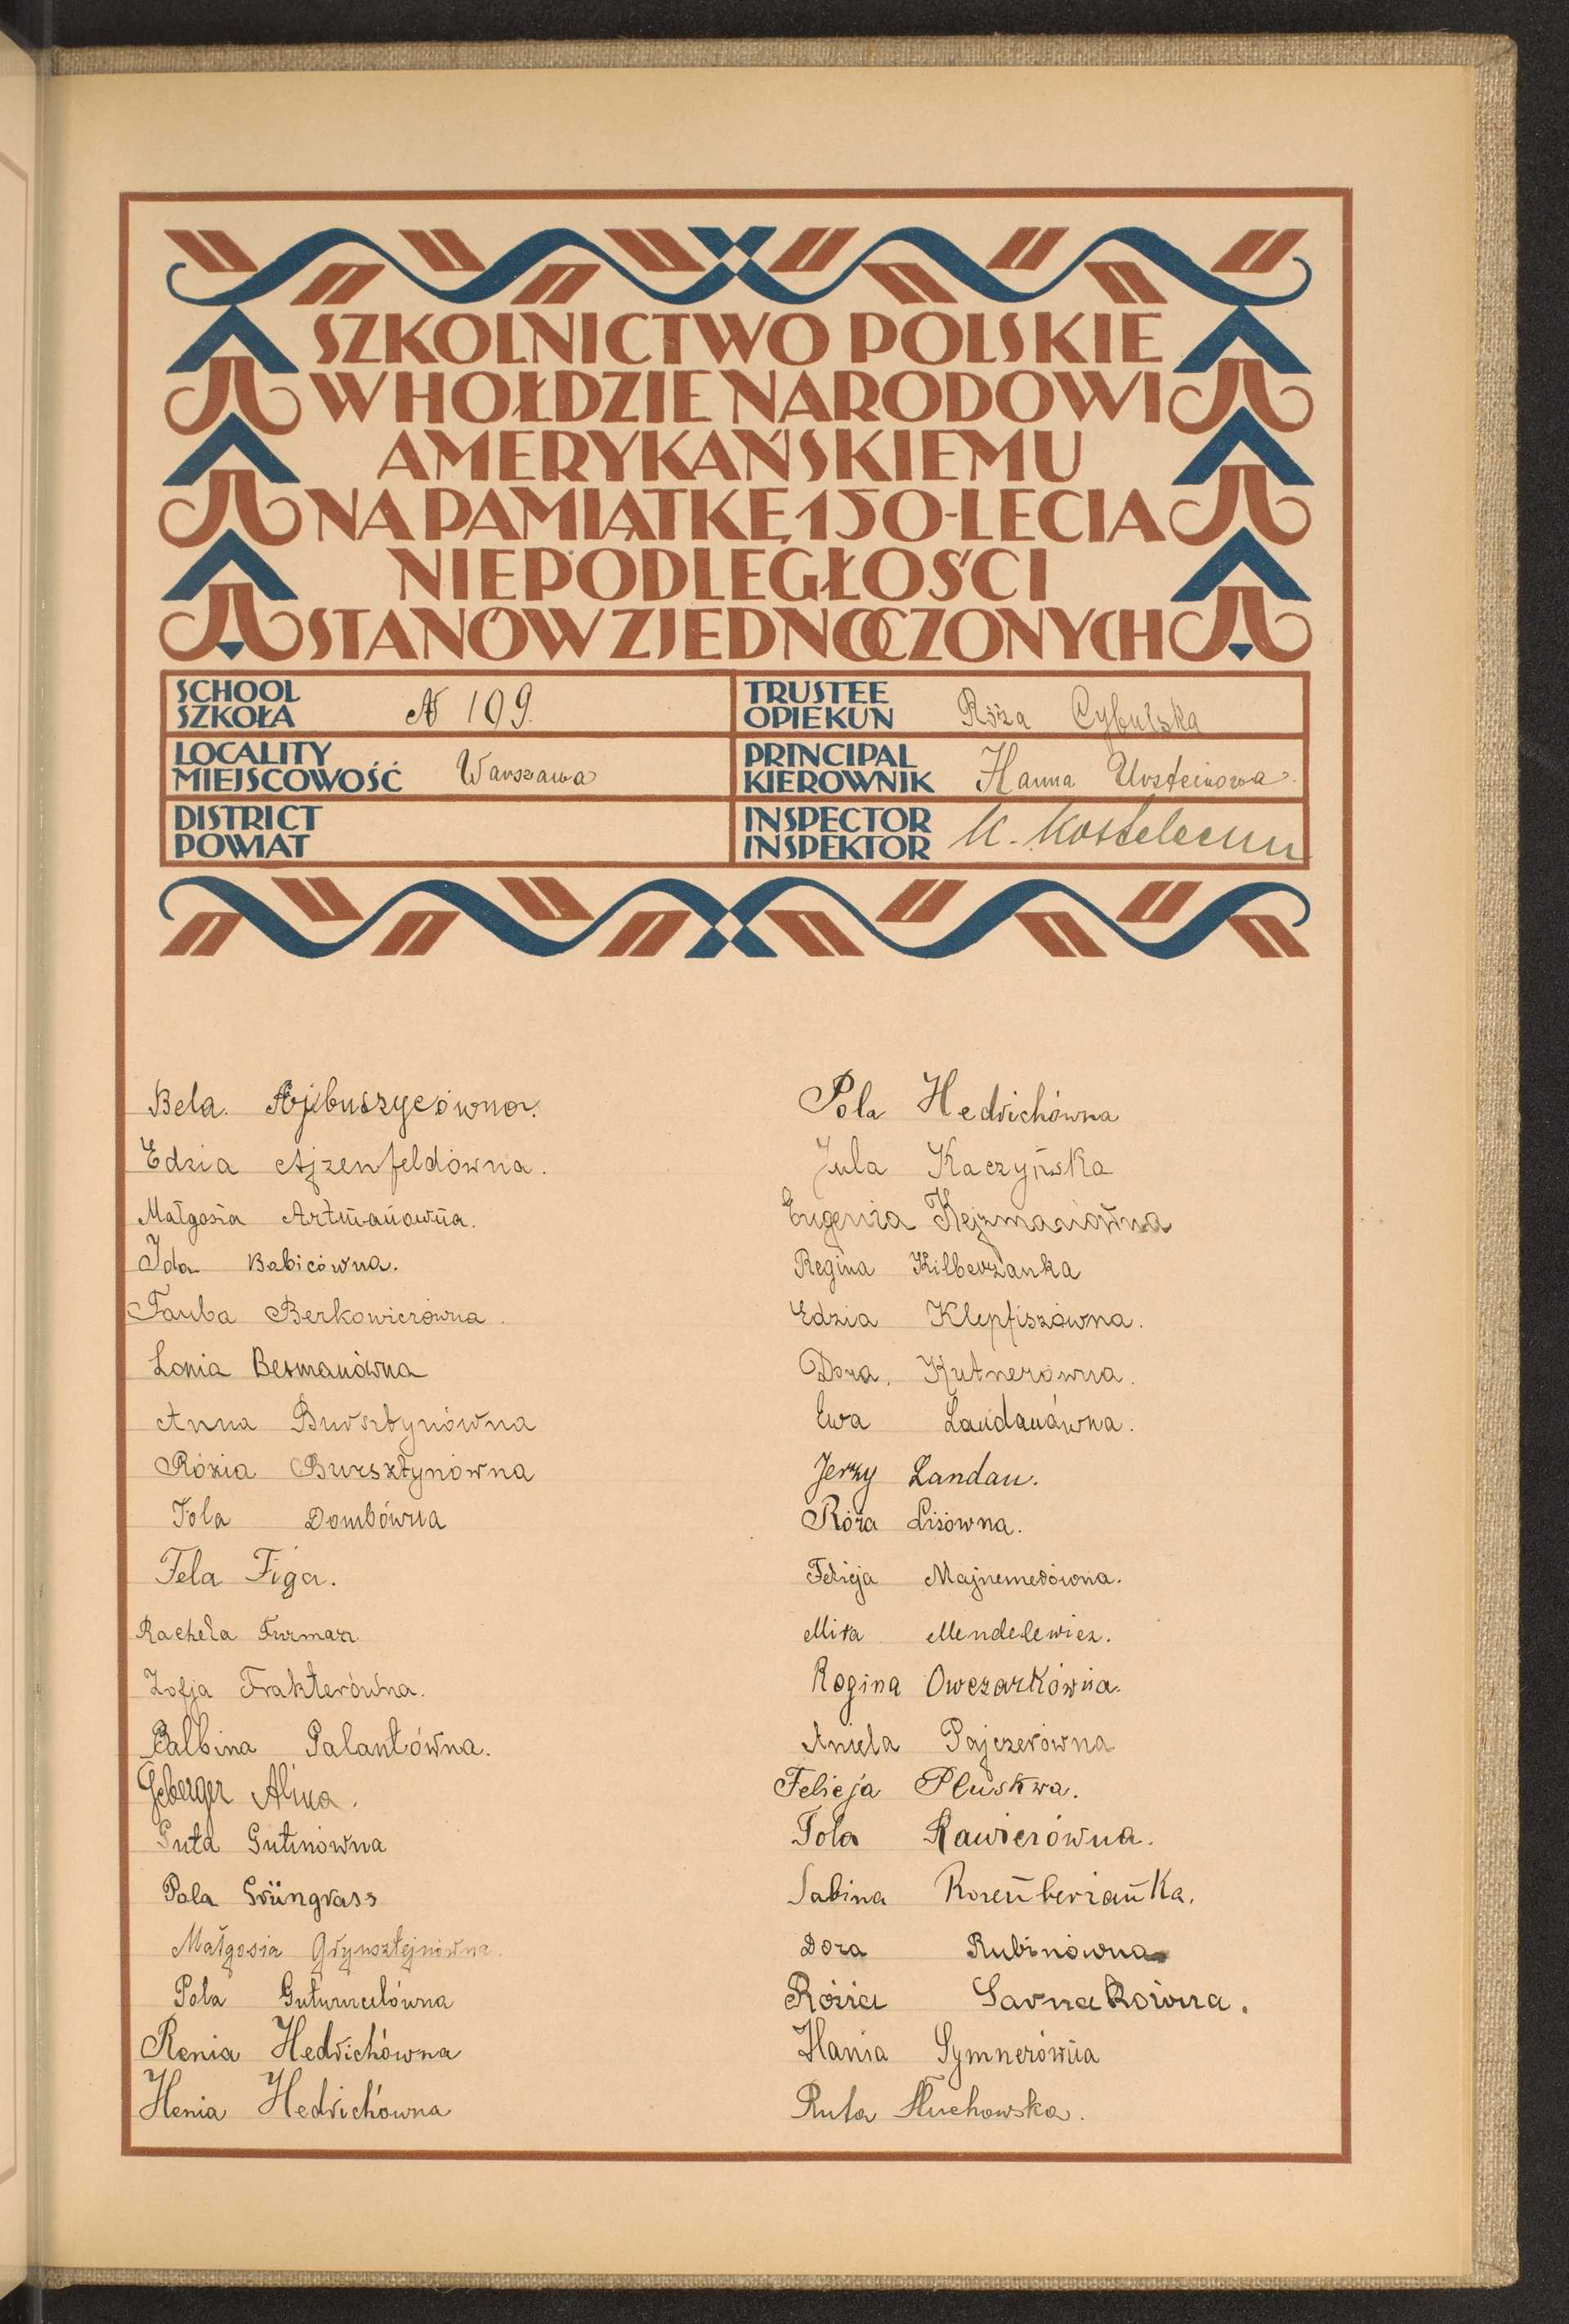 SZKOLNICTWO POLSKIE
W HOŁDZIE NARODOWI
AMERYKAŃSKIEMU
NA PAMIĄTKĘ 150-LECIA
NIEPODLEGŁOŚCI
STANÓW ZJEDNOCZONYCH
SCHOOL
SZKOŁA N 109.
TRUSTEE
OPIEKUN Róża Cybulska
LOCALITY
MIEJSCOWOŚĆ Warszawa
PRINCIPAL
KIEROWNIK Hanna Ursteinowa
DISTRICT
POWIAT
INSPECTOR
INSPEKTOR K.
Bela Ajbuszycówna.
Edzia Ajzenfeldówna.
Małgosia Artmanówna.
Ida Babicówna.
Tauba Berkowiczówna.
Lonia Bermanówna
Anna Bursztynówna
Rózia Bursztynówna
Tola Dombówna
Fela Figa.
Rachela Furman.
Zofja Frakterówna.
Balbina Palantówna.
Geberger Alina.
Guta Gutnówna
Pola Grüngrass
Małgosia Grynsztejnówna.
Pola
Renia Hedrichówna
Henia Hedrichówna
Pola Hedrichówna
Jula Kaczyńska
Eugenia Kejzmanówna
Regina Kilberżanka
Edzia Klepfiszówna.
Dora. Kutnerówna.
Ewa Landauówna.
Jerzy Landau.
Róża Lisówna.
Felicja Majnemerówna.
Mira Mendelewicz.
Regina Owczarkówna.
Aniela Pajczerówna
Felicja Pluskwa.
Tola Rawierówna.
Sabina Rozenberżanka.
Dora Rubinówna
Rózia Sarnakówna.
Hania Symnerówna
Ruta Słuchowska.